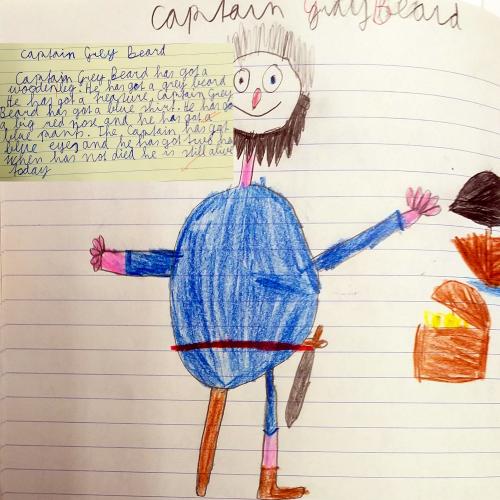 captain GreyBeard
Captain Grey Beard
Captain Grey Beard has got a
wooden leg. He has got a grey beard
He has got a Captain Grey
Beard has got a blue shirt. He has got
a big red nose and he has got a
blue pants. The Captain has got
blue eyes and he has got two
when has not died he is still alive
today